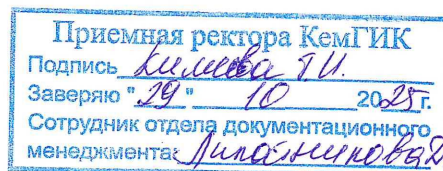 Приемная ректора КемГИК
Подпись Т.И.
Заверяю "29" 10 2025 г.
Сотрудник отдела документационного
менеджмента: